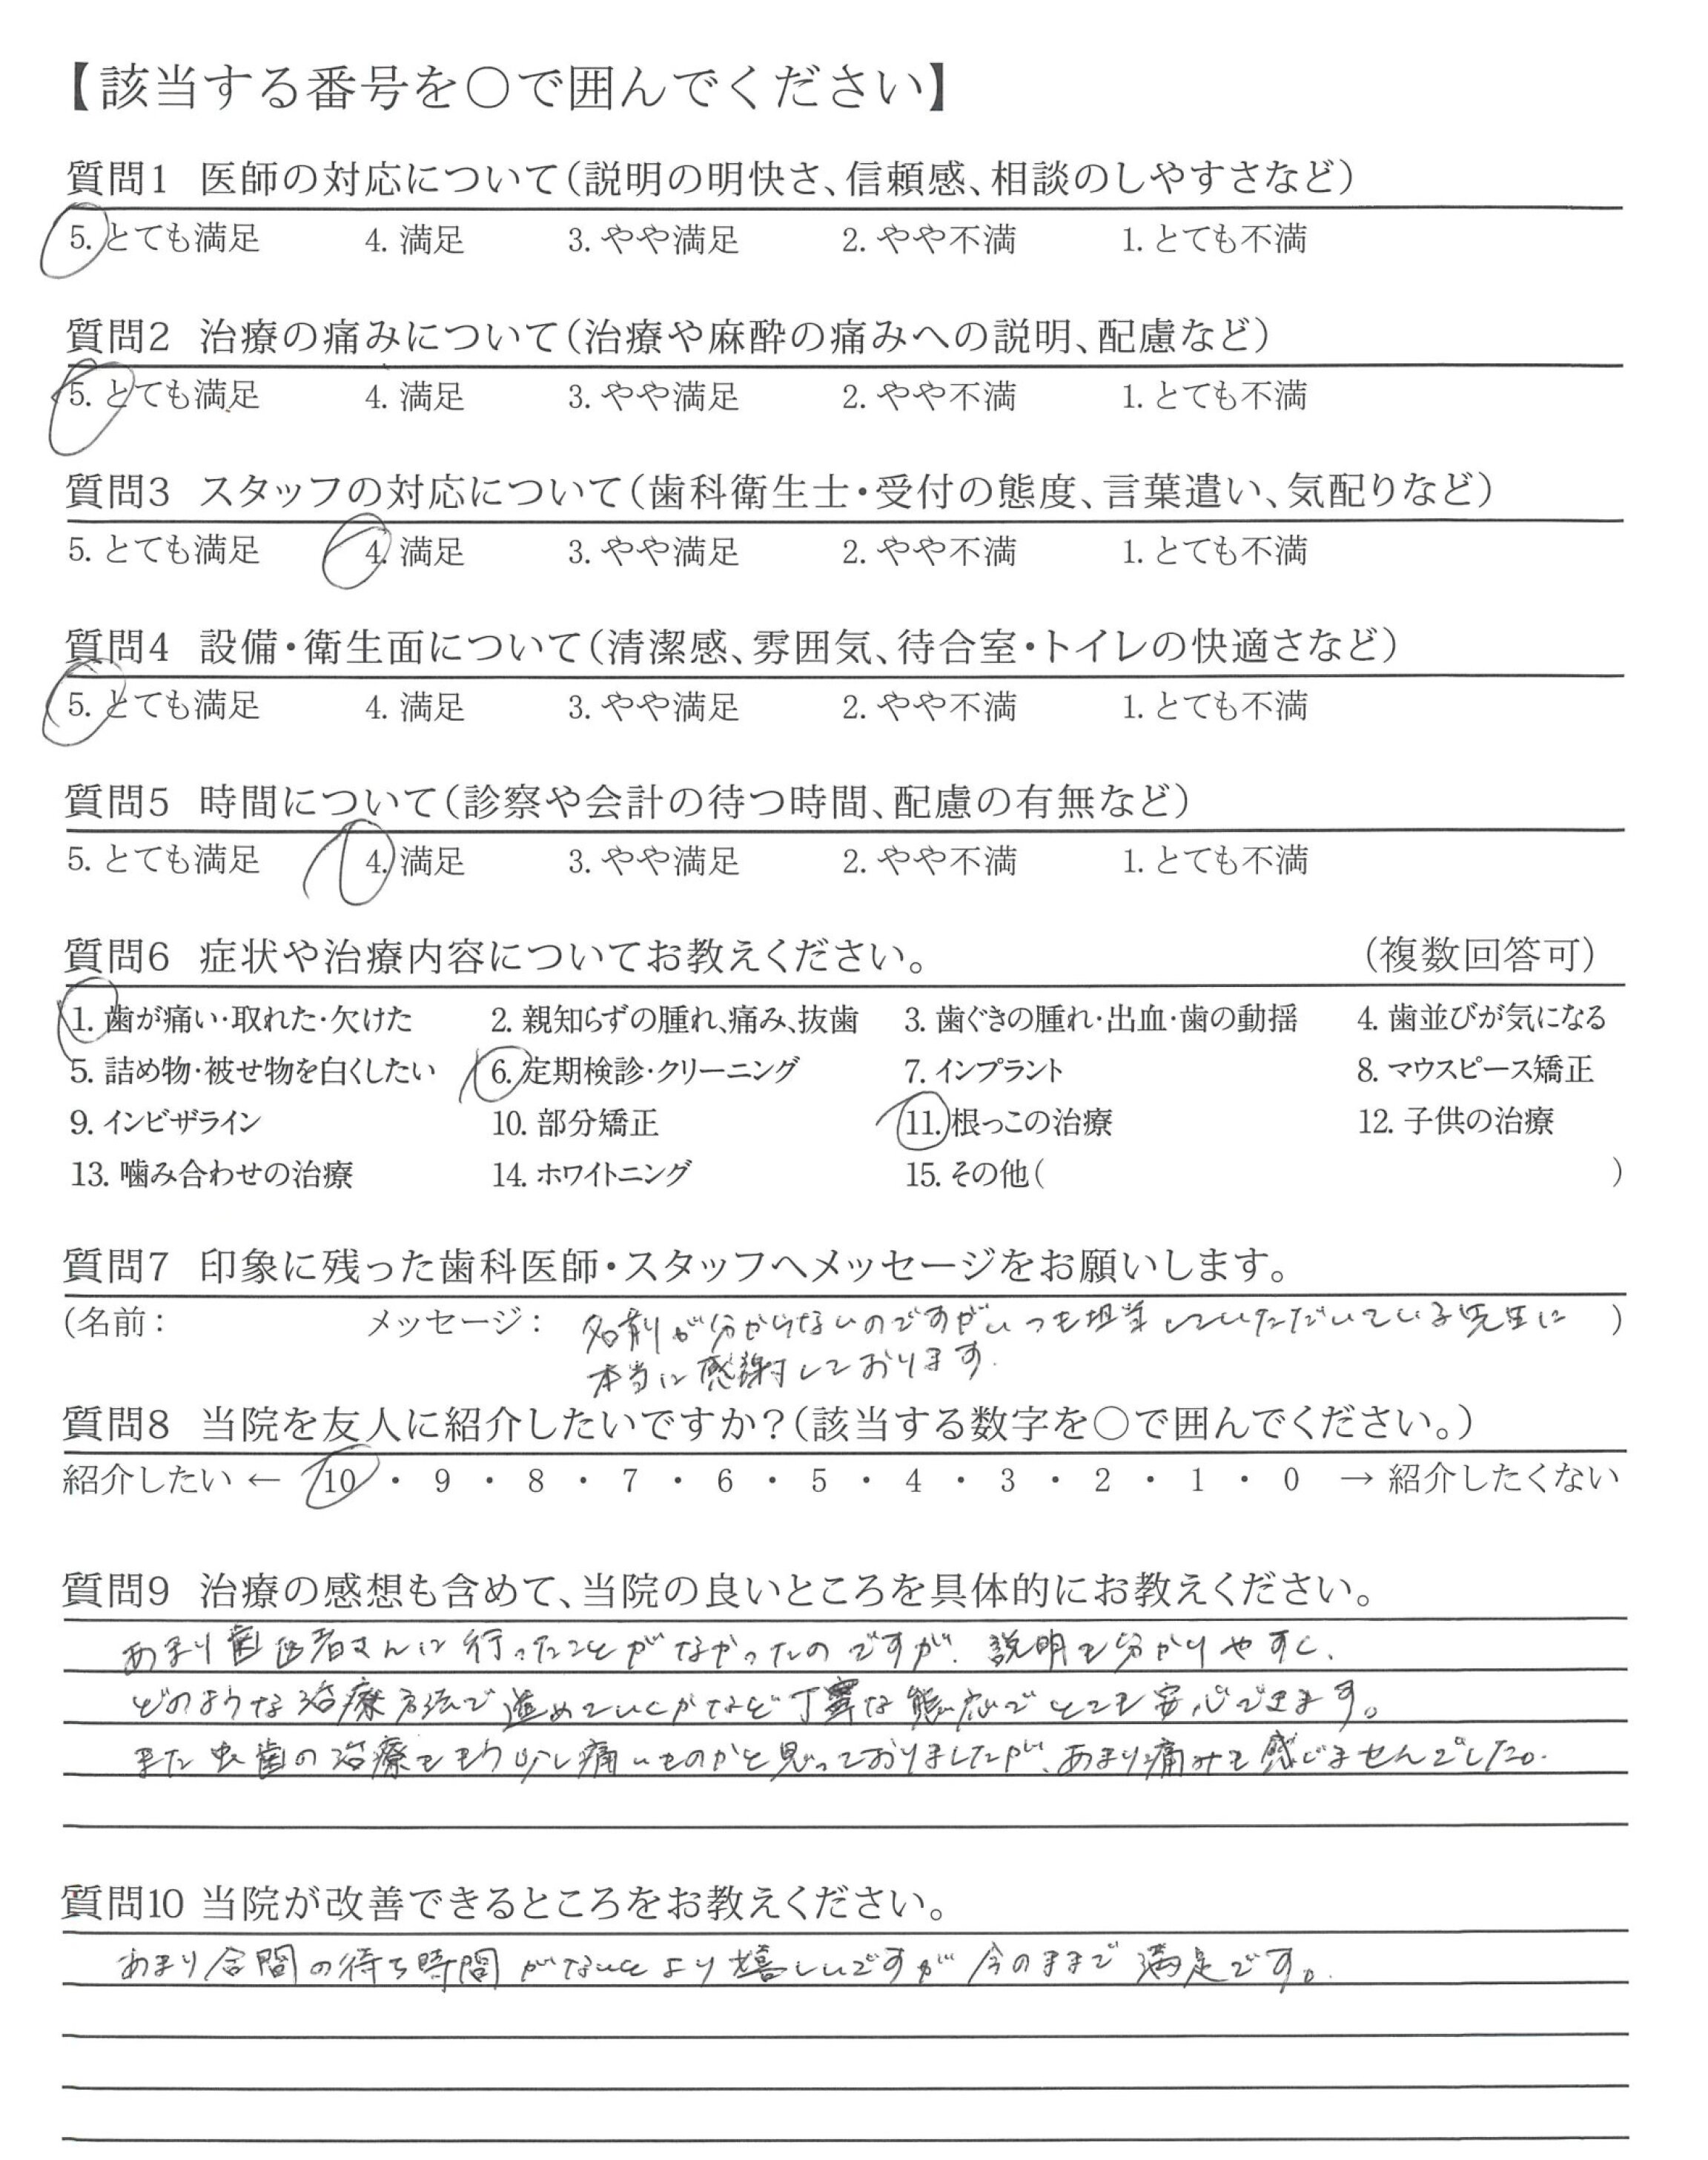 【該当する番号を〇で囲んでください】
質問1 医師の対応について(説明の明快さ、信頼感、相談のしやすさなど)
5. とても満足 4. 満足 3. やや満足 2. やや不満 1. とても不満
質問2 治療の痛みについて(治療や麻酔の痛みへの説明、配慮など)
5. とても満足 4. 満足 3. やや満足 2. やや不満 1. とても不満
質問3 スタッフの対応について(歯科衛生士・受付の態度、言葉遣い、気配りなど)
5. とても満足 4. 満足 3. やや満足 2. やや不満 1. とても不満
質問4 設備・衛生面について(清潔感、雰囲気、待合室・トイレの快適さなど)
5. とても満足 4. 満足 3. やや満足 2. やや不満 1. とても不満
質問5 時間について(診察や会計の待つ時間、配慮の有無など)
5. とても満足 4. 満足 3. やや満足 2. やや不満 1. とても不満
質問6 症状や治療内容についてお教えください。 (複数回答可)
1. 歯が痛い・取れた・欠けた 2. 親知らずの腫れ、痛み、抜歯 3. 歯ぐきの腫れ・出血・歯の動揺 4. 歯並びが気になる
5. 詰め物・被せ物を白くしたい 6. 定期検診・クリーニング 7. インプラント 8. マウスピース矯正
9. インビザライン 10. 部分矯正 11. 根っこの治療 12. 子供の治療
13. 噛み合わせの治療 14. ホワイトニング 15. その他( )
質問7 印象に残った歯科医師・スタッフへメッセージをお願いします。
(名前: メッセージ: 名前が分からないのですがいつも担当していただいている先生に )
本当に感謝しております。
質問8 当院を友人に紹介したいですか?(該当する数字を〇で囲んでください。)
紹介したい ← 10 ・ 9 ・ 8 ・ 7 ・ 6 ・ 5 ・ 4 ・ 3 ・ 2 ・ 1 ・ 0 → 紹介したくない
質問9 治療の感想も含めて、当院の良いところを具体的にお教えください。
あまり歯医者さんに行ったことがなかったのですが、説明も分かりやすく、
どのような治療方法で進めていくかなど丁寧な態応でとても安心できます。
また虫歯の治療ももう少し痛いものかと思っておりましたが、あまり痛みも感じませんでした。
質問10 当院が改善できるところをお教えください。
あまり合間の待ち時間がないとより嬉しいですが今のままで満足です。